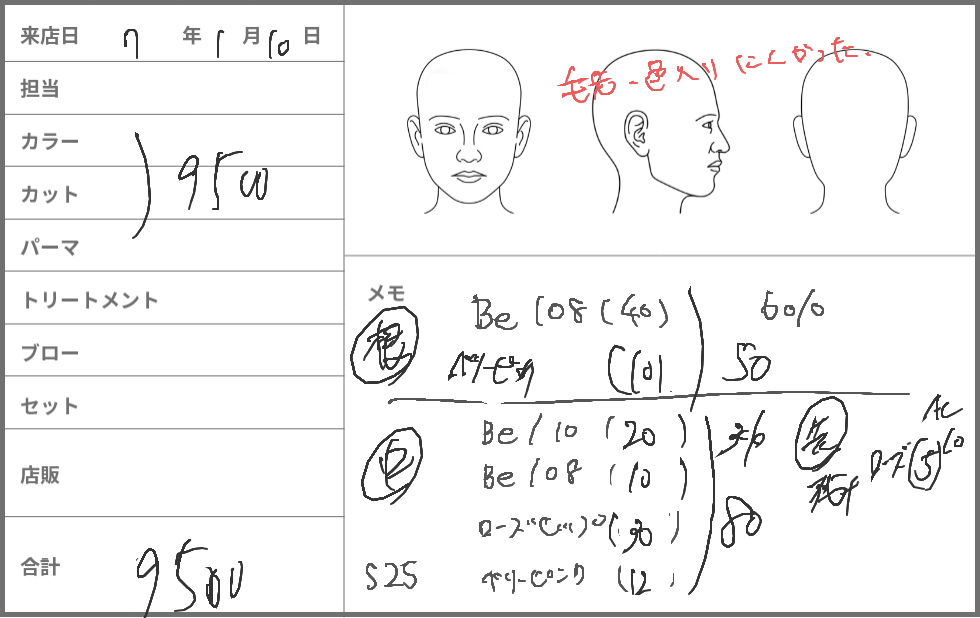 来店日 7 年 1 月 10 日
担当
カラー
カット
9500
パーマ
トリートメント
ブロー
セット
店販
合計 9500
毛先 色入りにくかった。
メモ
根 Be 108 (40) 6%
ベリーピンク (10) 50
Be 110 (20) 3%
Be 108 (10)
ローズ (5)
ローズピンク (30) 80
S25 ベリーピンク (12)